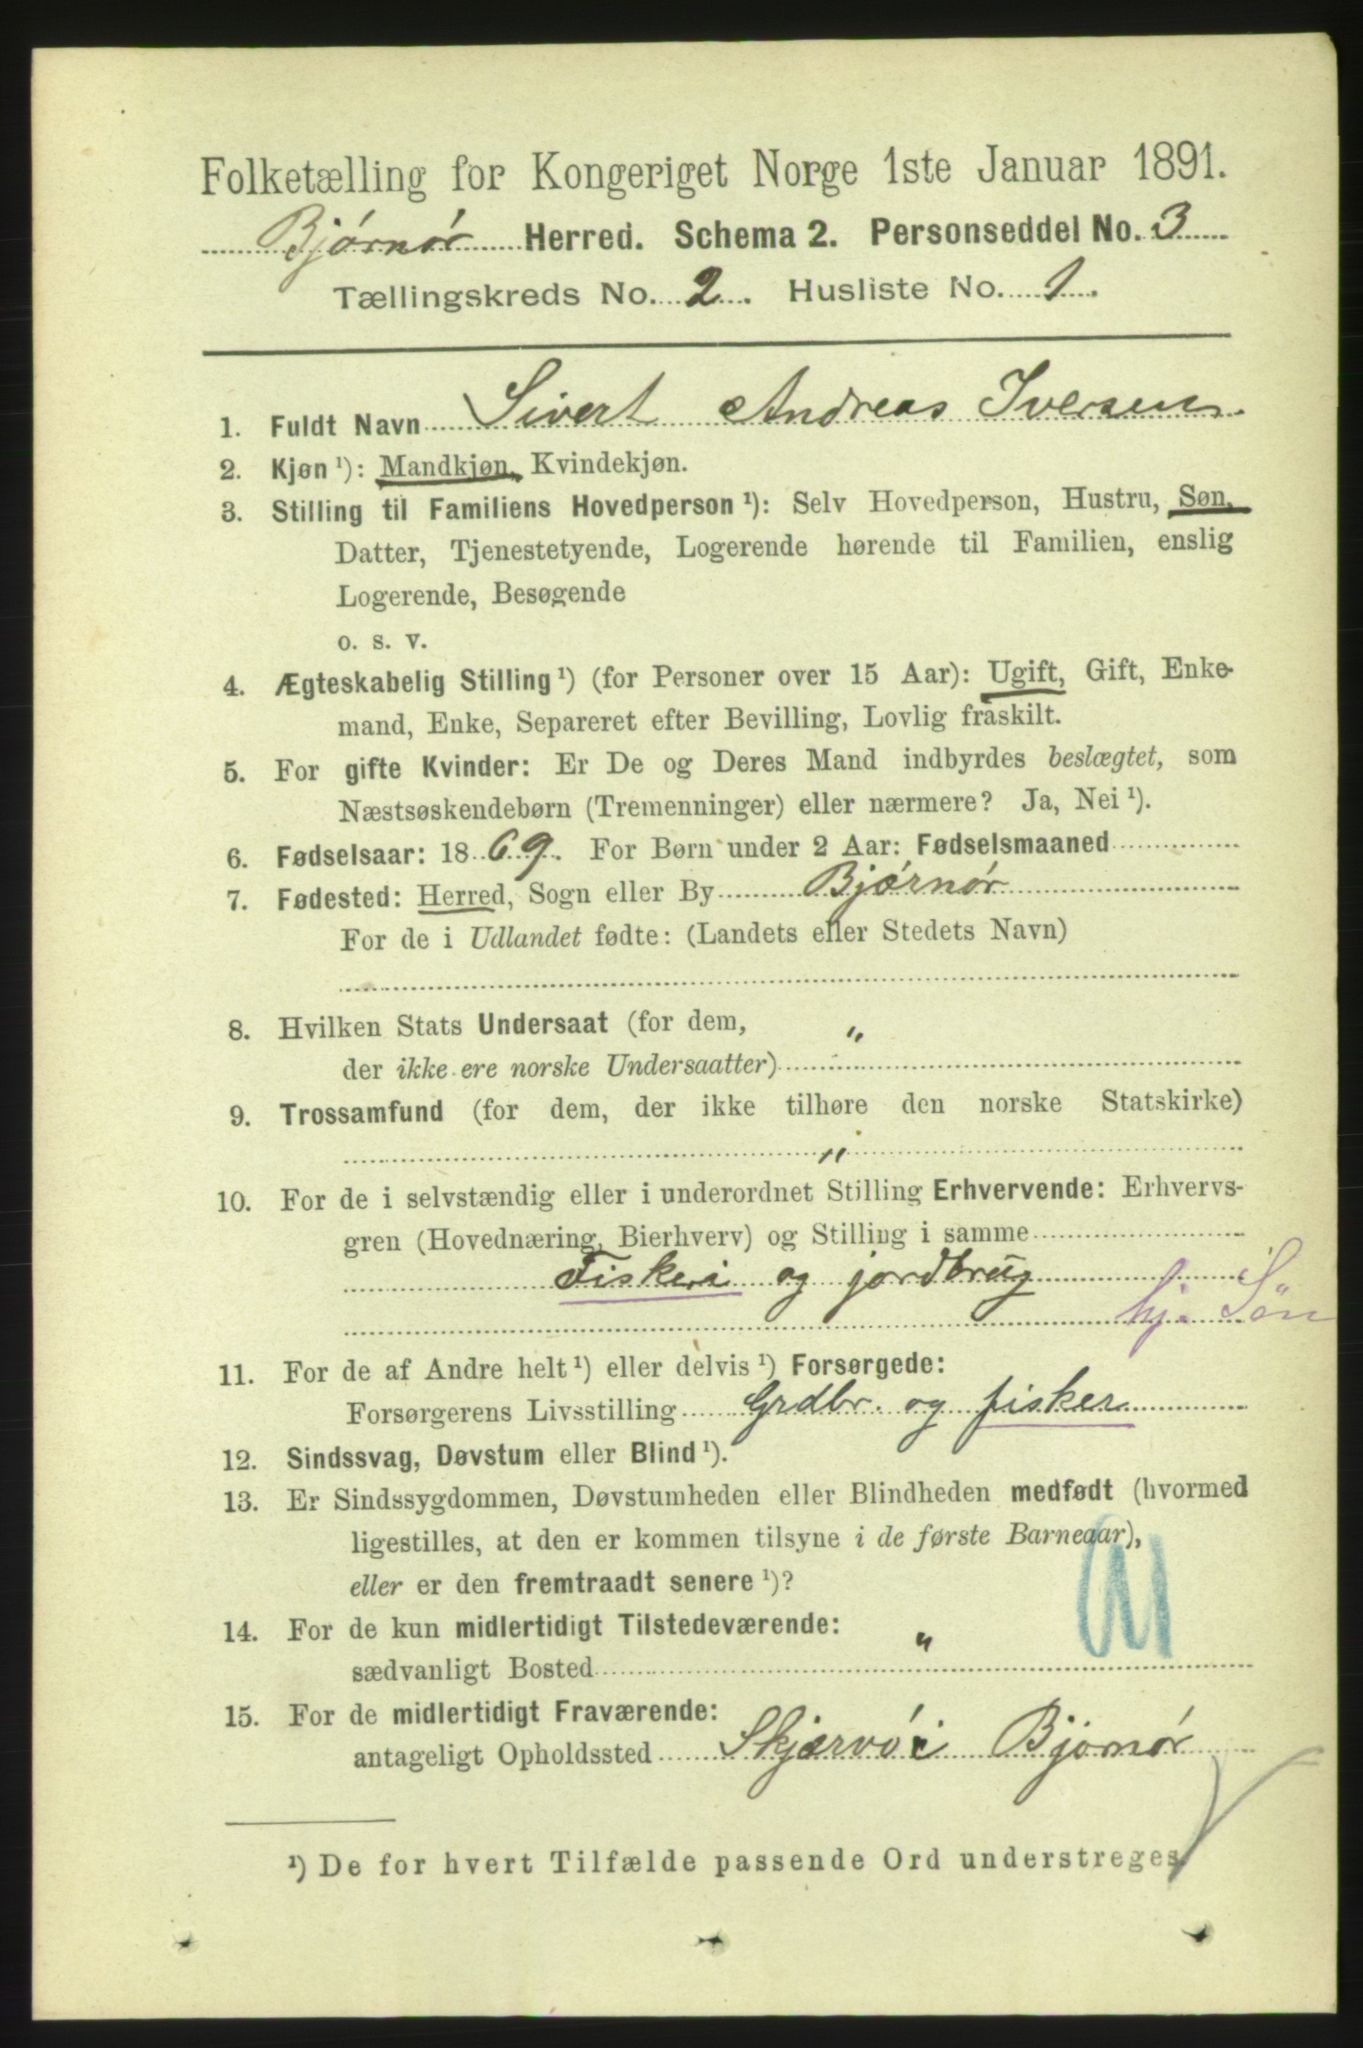 Folketælling for Kongeriget Norge 1ste Januar 1891.
Bjørnør Herred. Schema 2. Personseddel No. 3
Tællingskreds No. 2. Husliste No. 1.
1. Fuldt Navn Sivert Andreas Iversen
2. Kjøn ¹): Mandkjøn, Kvindekjøn.
3. Stilling til Familiens Hovedperson ¹): Selv Hovedperson, Hustru, Søn,
Datter, Tjenestetyende, Logerende hørende til Familien, enslig
Logerende, Besøgende
o. s. v.
4. Ægteskabelig Stilling ¹) (for Personer over 15 Aar): Ugift, Gift, Enke-
mand, Enke, Separeret efter Bevilling, Lovlig fraskilt.
5. For gifte Kvinder: Er De og Deres Mand indbyrdes beslægtet, som
Næstsøskendebørn (Tremenninger) eller nærmere? Ja, Nei ¹).
6. Fødselsaar: 1869. For Børn under 2 Aar: Fødselsmaaned
7. Fødested: Herred, Sogn eller By Bjørnør
For de i Udlandet fødte: (Landets eller Stedets Navn)
8. Hvilken Stats Undersaat (for dem, "
der ikke ere norske Undersaatter)
9. Trossamfund (for dem, der ikke tilhøre den norske Statskirke)
"
10. For de i selvstændig eller i underordnet Stilling Erhvervende: Erhvervs-
gren (Hovednæring, Bierhverv) og Stilling i samme
Fiskeri og jordbrug
hj. Søn
11. For de af Andre helt ¹) eller delvis ¹) Forsørgede:
Forsørgerens Livsstilling Grdbr. og fisker
12. Sindssvag, Døvstum eller Blind ¹).
13. Er Sindssygdommen, Døvstumheden eller Blindheden medfødt (hvormed
ligestilles, at den er kommen tilsyne i de første Barneaar),
eller er den fremtraadt senere ¹)?
14. For de kun midlertidigt Tilstedeværende: "
sædvanligt Bosted
15. For de midlertidigt Fraværende:
antageligt Opholdssted Skjærvø i Bjørnør
¹) De for hvert Tilfælde passende Ord understreges.